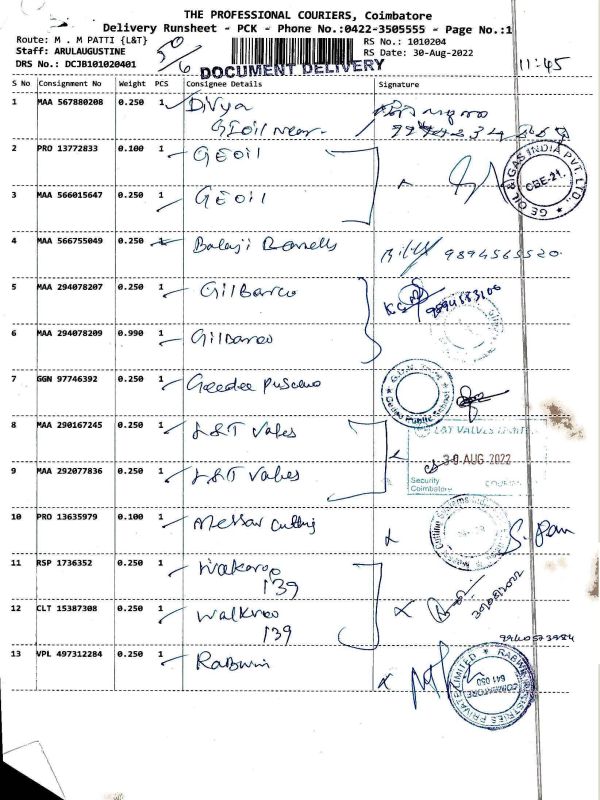 THE PROFESSIONAL COURIERS, Coimbatore
Delivery Runsheet - PCK - Phone No.:0422-3505555 - Page No.:1
Route: M . M PATTI {L&T}
Staff: ARULAUGUSTINE
DRS No.: DCJB101020401
50/6
RS No.: 1010204
RS Date: 30-Aug-2022
DOCUMENT DELIVERY
11:45
S No Consignment No Weight PCS Consignee Details Signature
1 MAA 567880208 0.250 1 Divya
GEOil near
2 PRO 13772833 0.100 1 GEOil
GE OIL & GAS INDIA PVT. LTD.,
CBE-21.
3 MAA 566015647 0.250 1 GEOil
4 MAA 566755049 0.250 1 Balaji 9894565520
5 MAA 294078207 0.250 1 Gilbarco
6 MAA 294078209 0.990 1 Gilbarco
7 GGN 97746392 0.250 1 Geedee
8 MAA 290167245 0.250 1 L&T Valves
L&T VALVES LIMITED
30 AUG 2022
Security
Coimbatore
9 MAA 292077836 0.250 1 L&T Valves
10 PRO 13635979 0.100 1 Messer Cutting
11 RSP 1736352 0.250 1 Wakaroo
139
30/08/2022
12 CLT 15387308 0.250 1 Walkaroo
139
9940573984
13 VPL 497312284 0.250 1 Rabwin
COIMBATORE
641 050